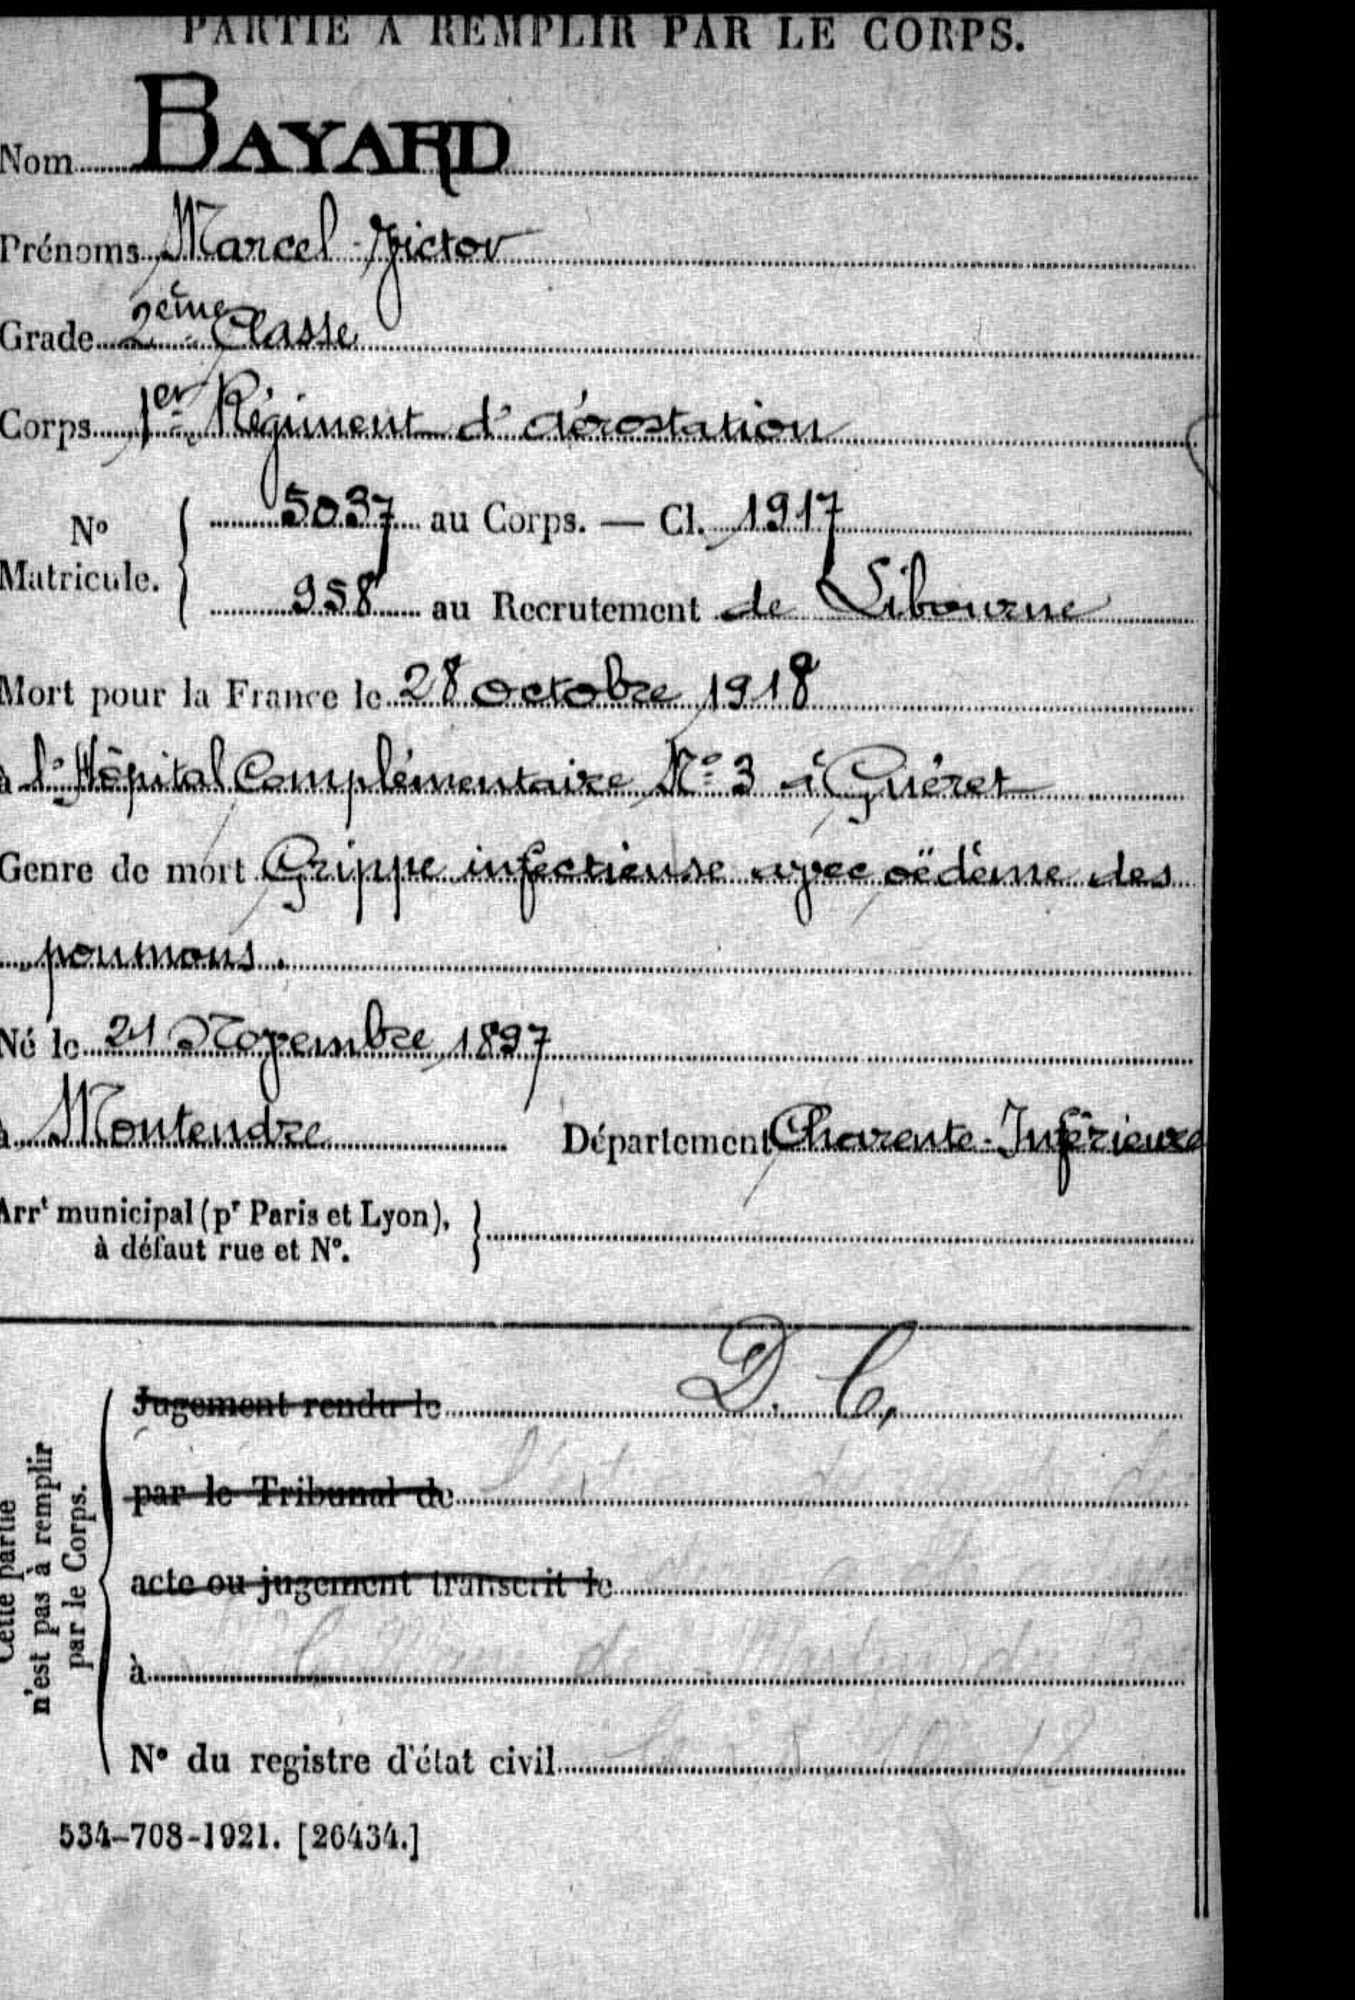 PARTIE À REMPLIR PAR LE CORPS.
Nom BAYARD
Prénoms Marcel-Victor
Grade 2ème Classe
Corps 1er Régiment d'aérostation
N° Matricule. { 5037 au Corps. — Cl. 1917
958 au Recrutement de Libourne
Mort pour la France le 28 octobre 1918
à l'Hôpital Complémentaire N° 3 à Guéret
Genre de mort Grippe infectieuse avec oëdème des
poumons.
Né le 21 Novembre 1897
à Montendre Département Charente-Inférieure
Arrt municipal (pr Paris et Lyon), }
à défaut rue et N°.
Cette partie
n'est pas à remplir
par le Corps.
Jugement rendu le D. C.
par le Tribunal de
acte ou jugement transcrit le
à
N° du registre d'état civil
534-708-1921. [26434.]